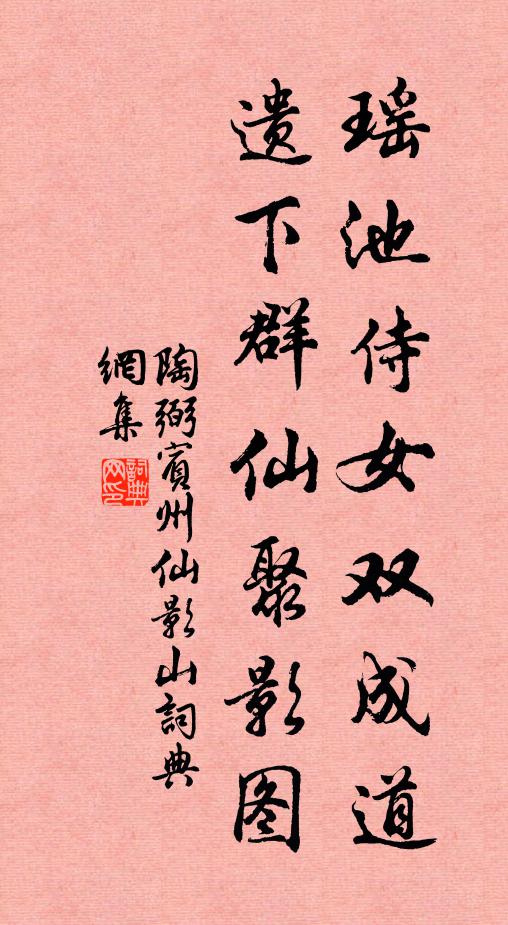 瑶池侍女双成道
遗下群仙聚影图
陶弼賓州仙影山詞典
網集
詞典
网印